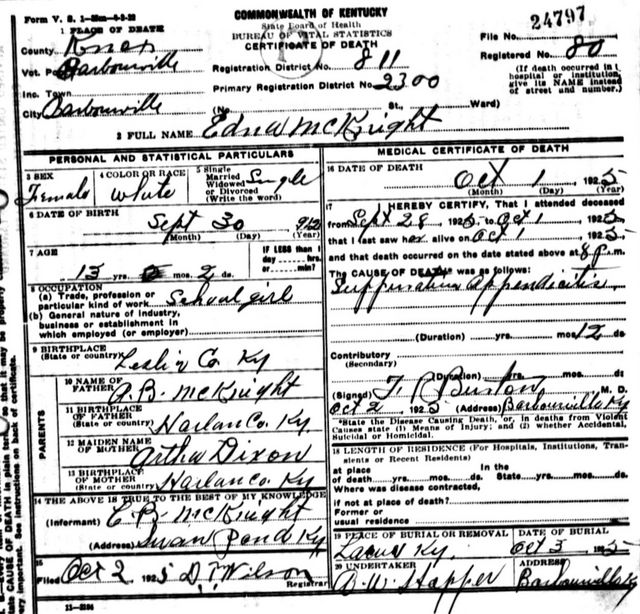 Form V. S. 1-
COMMONWEALTH OF KENTUCKY
State Board of Health
BUREAU OF VITAL STATISTICS
CERTIFICATE OF DEATH
File No. 24797
Registered No. 80
(If death occurred in hospital or institution, give its NAME instead of street and number.)
1 PLACE OF DEATH
County Knox
Vot. Barbourville
Inc. Town
City Barbourville
Registration District No. 811
Primary Registration District No. 2300
(No. St., Ward)
2 FULL NAME Edna McKnight
PERSONAL AND STATISTICAL PARTICULARS
3 SEX Female
4 COLOR OR RACE White
5 Single Married Widowed or Divorced (Write the word) Single
6 DATE OF BIRTH
Sept 30 912
(Month) (Day) (Year)
7 AGE
13 yrs. mos. 2 ds.
IF LESS than 1 day hrs. or min?
8 OCCUPATION
(a) Trade, profession or particular kind of work School girl
(b) General nature of Industry, business or establishment in which employed (or employer)
9 BIRTHPLACE
(State or country) Leslie Co. Ky
PARENTS
10 NAME OF FATHER A. B. McKnight
11 BIRTHPLACE OF FATHER
(State or country) Harlan Co. Ky
12 MAIDEN NAME OF MOTHER Artha Dixon
13 BIRTHPLACE OF MOTHER
(State or country) Harlan Co Ky
14 THE ABOVE IS TRUE TO THE BEST OF MY KNOWLEDGE
(Informant) McKnight
(Address) Swan Pond Ky
15
Filed Oct 2 1925 Wilson
Registrar
11-3184
MEDICAL CERTIFICATE OF DEATH
16 DATE OF DEATH
Oct 1 1925
(Month) (Day) (Year)
17 I HEREBY CERTIFY, That I attended deceased
from Sept 28 1925 to Oct 1 1925
that I last saw her alive on Oct 1 1925
and that death occurred on the date stated above at 8 P. m.
The CAUSE OF DEATH* was as follows:
Suppurative Appendicitis
(Duration) yrs. mos. 12 ds.
Contributory
(Secondary)
(Duration) yrs. mos. ds.
(Signed) Burton M. D.
Oct 2 1925 (Address) Barbourville Ky
*State the Disease Causing Death, or, in deaths from Violent Causes state (1) Means of Injury; and (2) whether Accidental, Suicidal or Homicidal.
18 LENGTH OF RESIDENCE (For Hospitals, Institutions, Transients or Recent Residents)
at place of death yrs. mos. ds. In the State yrs. mos. ds.
Where was disease contracted,
if not at place of death?
Former or
usual residence
19 PLACE OF BURIAL OR REMOVAL
Ky. Oct 3 1925
20 UNDERTAKER ADDRESS
Barbourville Ky